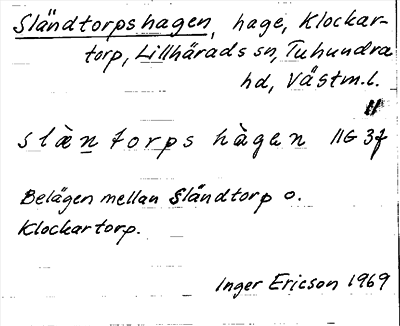 Sländtorpshagen, hage, Klockar-
torp, Lillhärads sn, Tuhundra
hd, Västm.l.
slæ̀n torps hàgen 11G 3f
Belägen mellan Sländtorp o.
Klockartorp.
Inger Ericson 1969